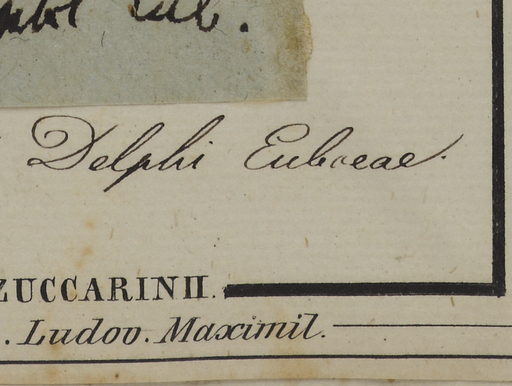 Delphi Euboeae.
ZUCCARINII.
. Ludov. Maximil.